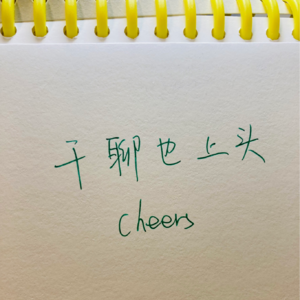 干聊也上头
cheers